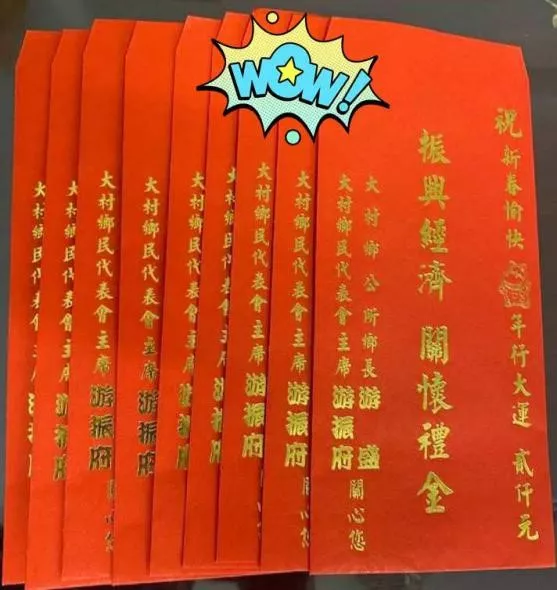 祝新春愉快 年行大運 貳仟元
振興經濟 關懷禮金
大村鄉公所鄉長 游盛
大村鄉民代表會主席 游振府 關心您
大村鄉民代表會主席 游振府
大村鄉民代表會主席 游振府
大村鄉民代表會主席
大村鄉民代表會主席 游振府
大村鄉民代表會主席 游振府
大村鄉民代表會主席 游振府 關心您
大村鄉民代表會主席 游振府
大村鄉民代表會主席 游振府
WOW!